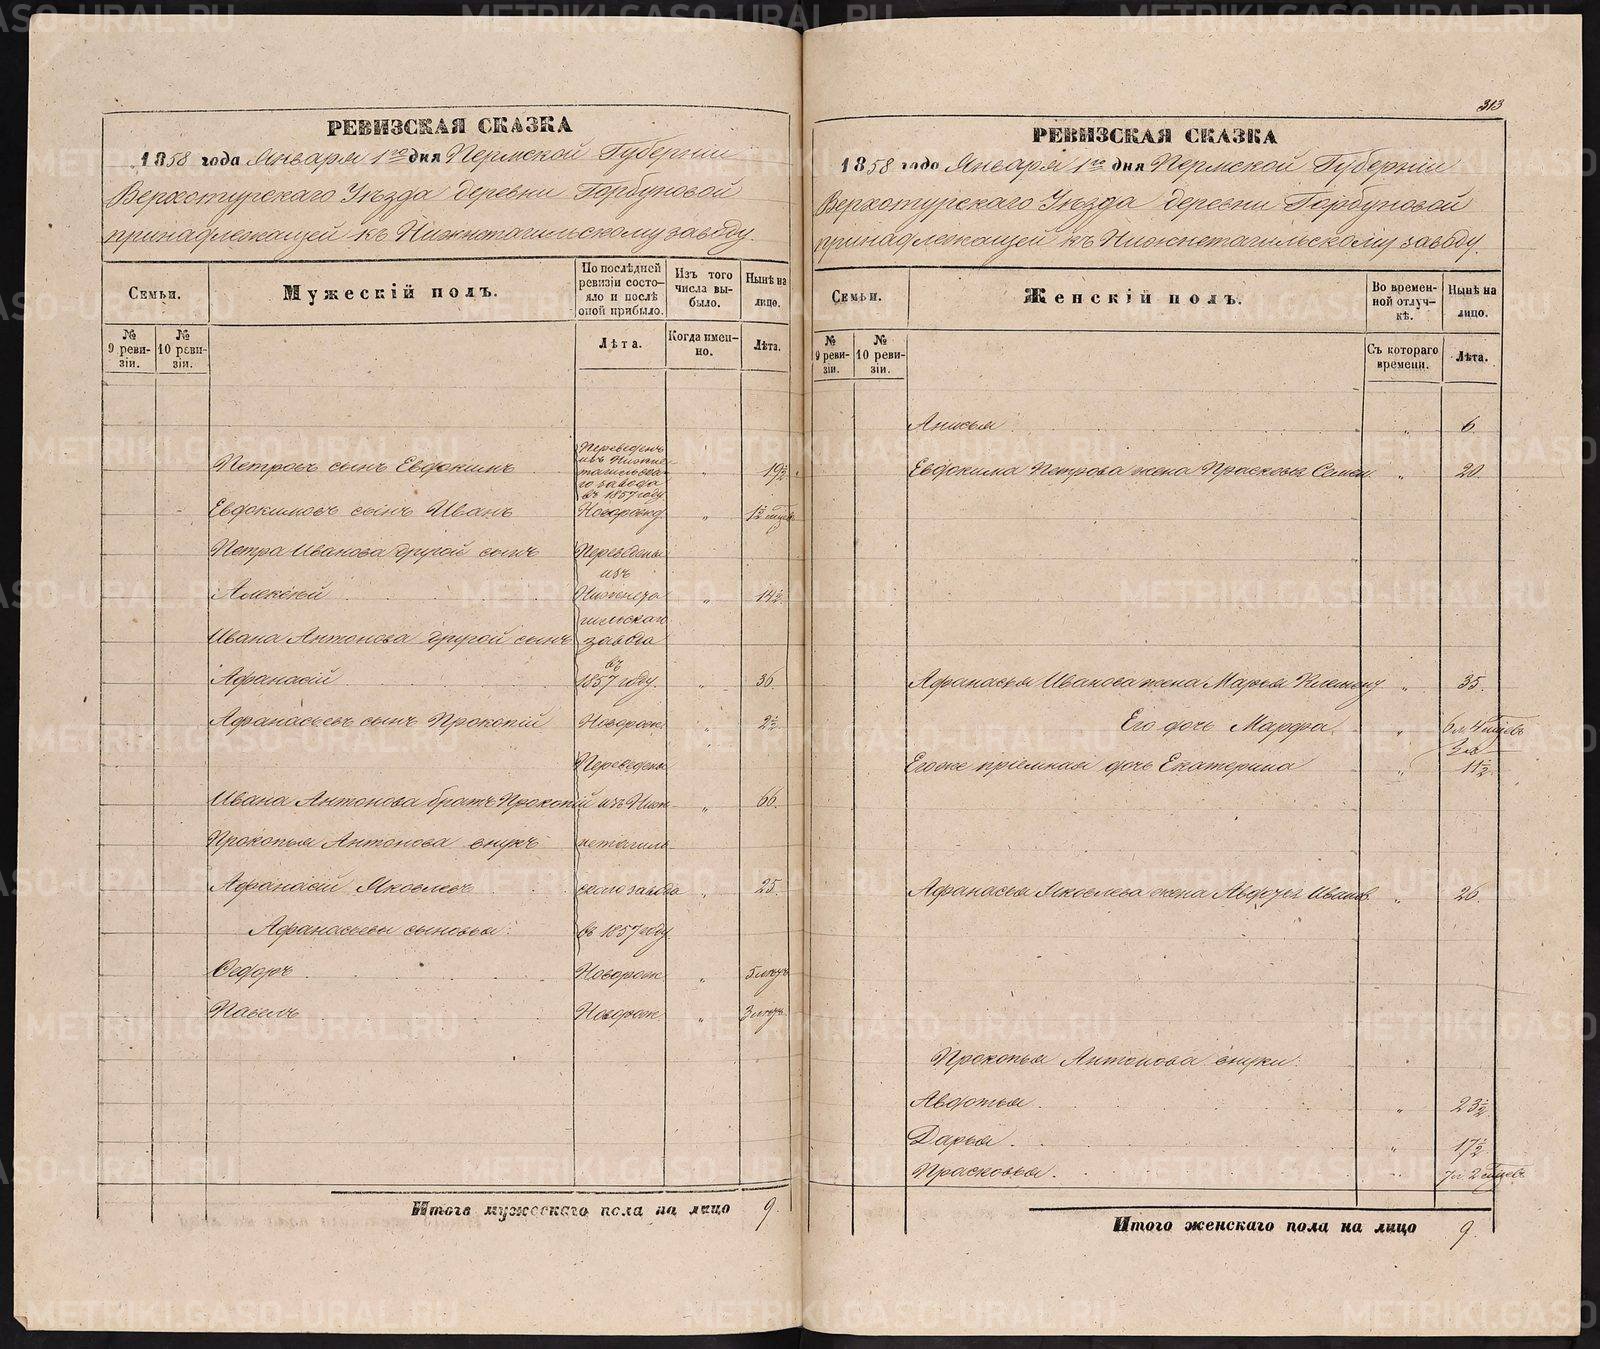 РЕВИЗСКАЯ СКАЗКА
1858 года Января 1го дня Пермской Губернии
Верхотурскаго Уѣзда деревни Горбуновой
принадлежащей къ Нижнетагильскому заводу.
Семьи.
Мужескій полъ.
По послѣдней ревизіи состояло и послѣ оной прибыло.
Изъ того числа выбыло.
Нынѣ на лицо.
№ 9 ревизіи.
№ 10 ревизіи.
Лѣта.
Когда именно.
Лѣта.
Переведенъ
изъ Нижне-
тагильска-
го завода
въ 1857 году
Петровъ сынъ Евдокимъ " 19½
Евдокимовъ сынъ Иванъ Новорожд. "
Петра Иванова другой сынъ Переведены
изъ
Алексѣй Нижнета " 14½
гильскаго
Ивана Антонова другой сынъ завода
въ
Афанасій 1857 году " 36
Афанасьевъ сынъ Прокопій Новорож. " 2½
Переведены
Ивана Антонова братъ Прокопій изъ Ниж- " 66
Прокопья Антонова внукъ нетагиль-
Афанасій Яковлевъ скаго завода " 25
Афанасьевы сыновья: въ 1857 году
Федоръ Новорож. "
Павелъ Новорож. "
Итого мужескаго пола на лицо 9.
313
РЕВИЗСКАЯ СКАЗКА
1858 года Января 1го дня Пермской Губерніи
Верхотурскаго Уѣзда деревни Горбуновой
принадлежащей къ Нижнетагильскому заводу.
Семьи.
Женскій полъ.
Во временной отлучкѣ.
Нынѣ на лицо.
№ 9 ревизіи.
№ 10 ревизіи.
Съ котораго времени.
Лѣта.
Анисья " 6
Евдокима Петрова жена Прасковья Семен. " 20
Афанасья Иванова жена Марья " 35.
Его дочь Марфа "
Егоже пріемная дочь Екатерина " 11½
Афанасья Яковлева жена Авдотья Иванов. " 26.
Прокопья Антонова внуки:
Авдотья " 23½
Дарья " 17½
Прасковья "
Итого женскаго пола на лицо 9.
METRIKI.GASO-URAL.RU